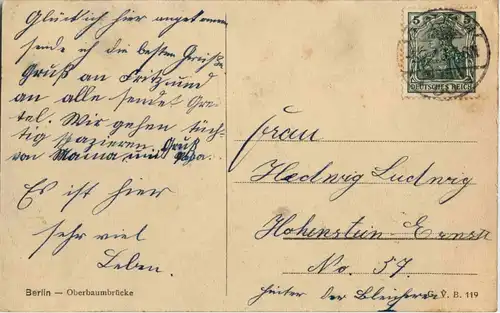 Glücklich hier angekommen
sende ich die besten Grüße.
Gruß an Fritz und
an alle sendet Gre-
tel. Wir gehen tüch-
tig spazieren. Gruß
von Mama und Papa.
Es ist hier
sehr viel
Leben.
Berlin — Oberbaumbrücke
5 5
DEUTSCHES REICH
Frau
Hedwig Ludwig
Hohenstein Ernstt
No. 57.
hinter der Bleicherei
G. V. B. 119